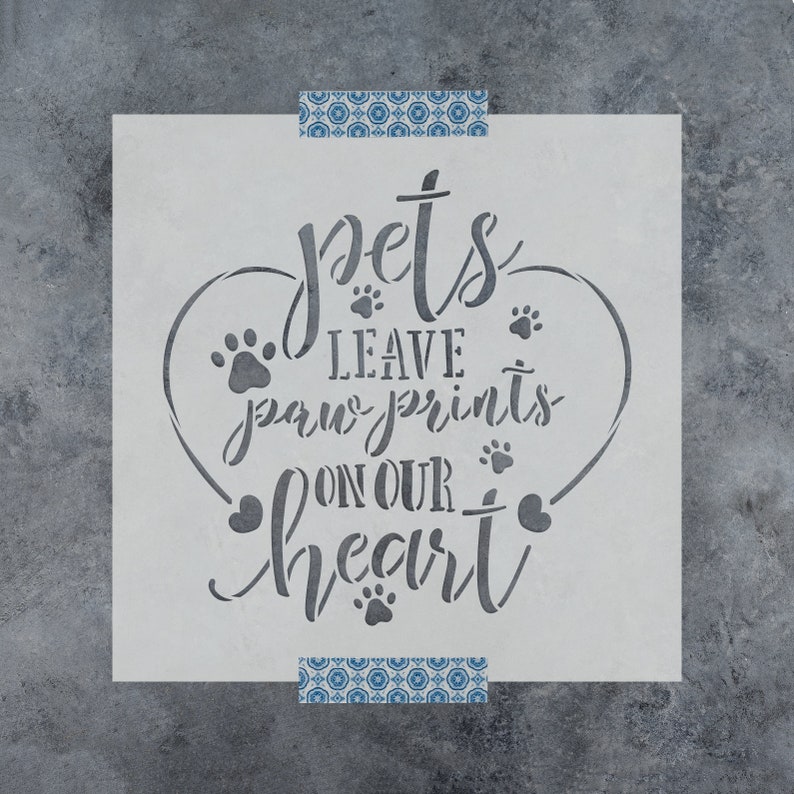 pets
LEAVE
paw prints
ON OUR
heart